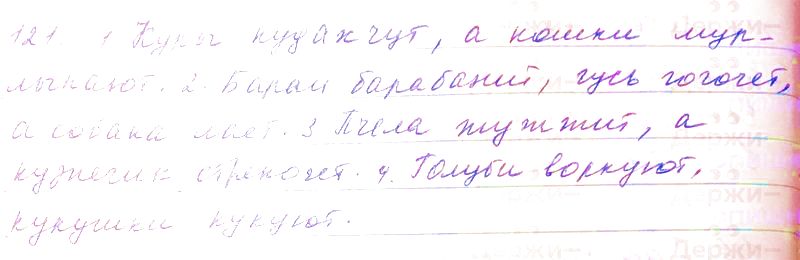 121. 1 Куры кудахчут, а кошки мур-
лыкают. 2. Баран барабанит, гусь гогочет,
а собака лает. 3 Пчела жужжит, а
кузнечик стрекочет. 4. Голуби воркуют,
кукушки кукуют.